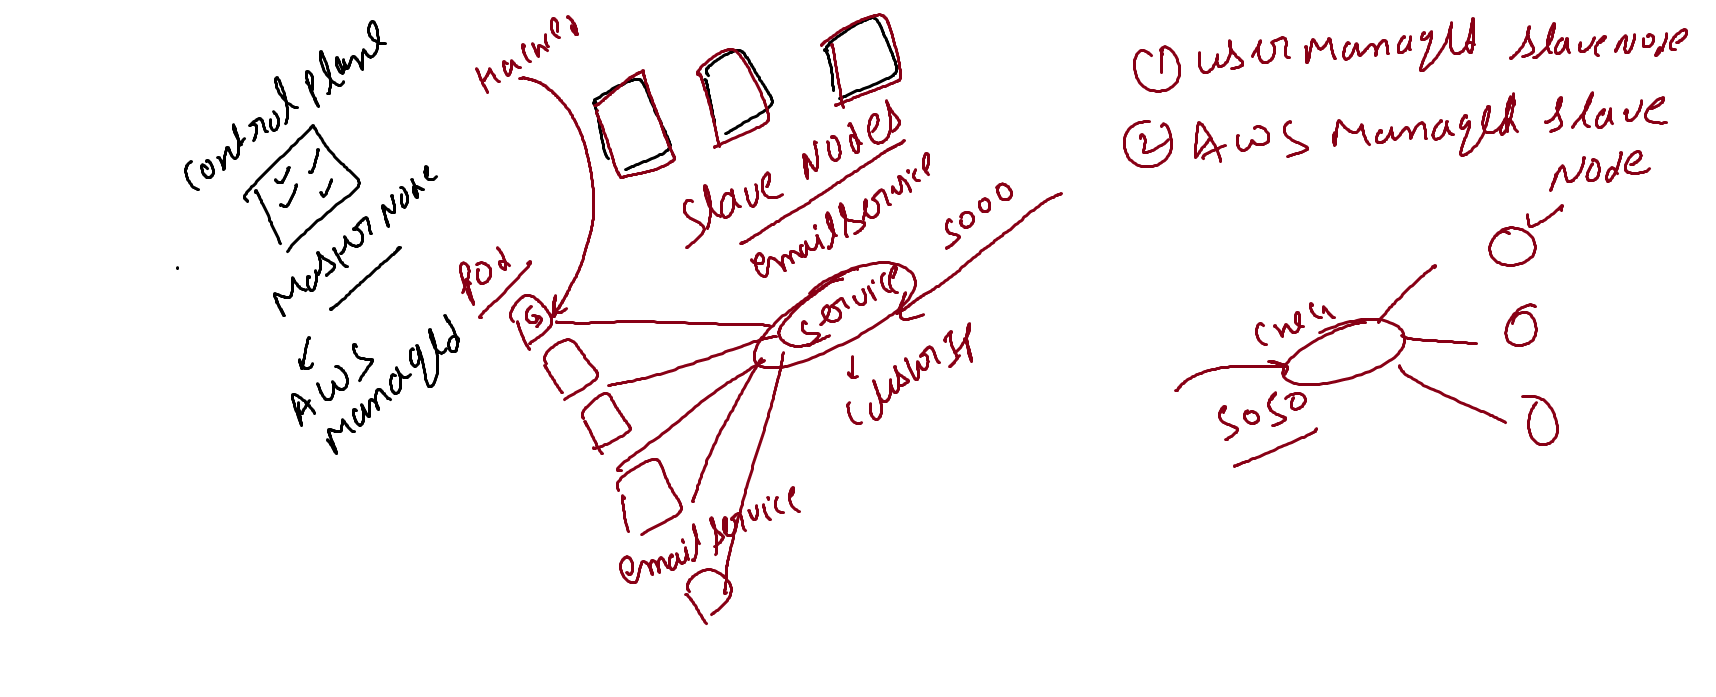 control plane
Master Node
AWS
Managed
Pod
Slave Nodes
emailservice
5000
service
emailservice
① user Managed slave node
② AWS Managed slave
Node
5050